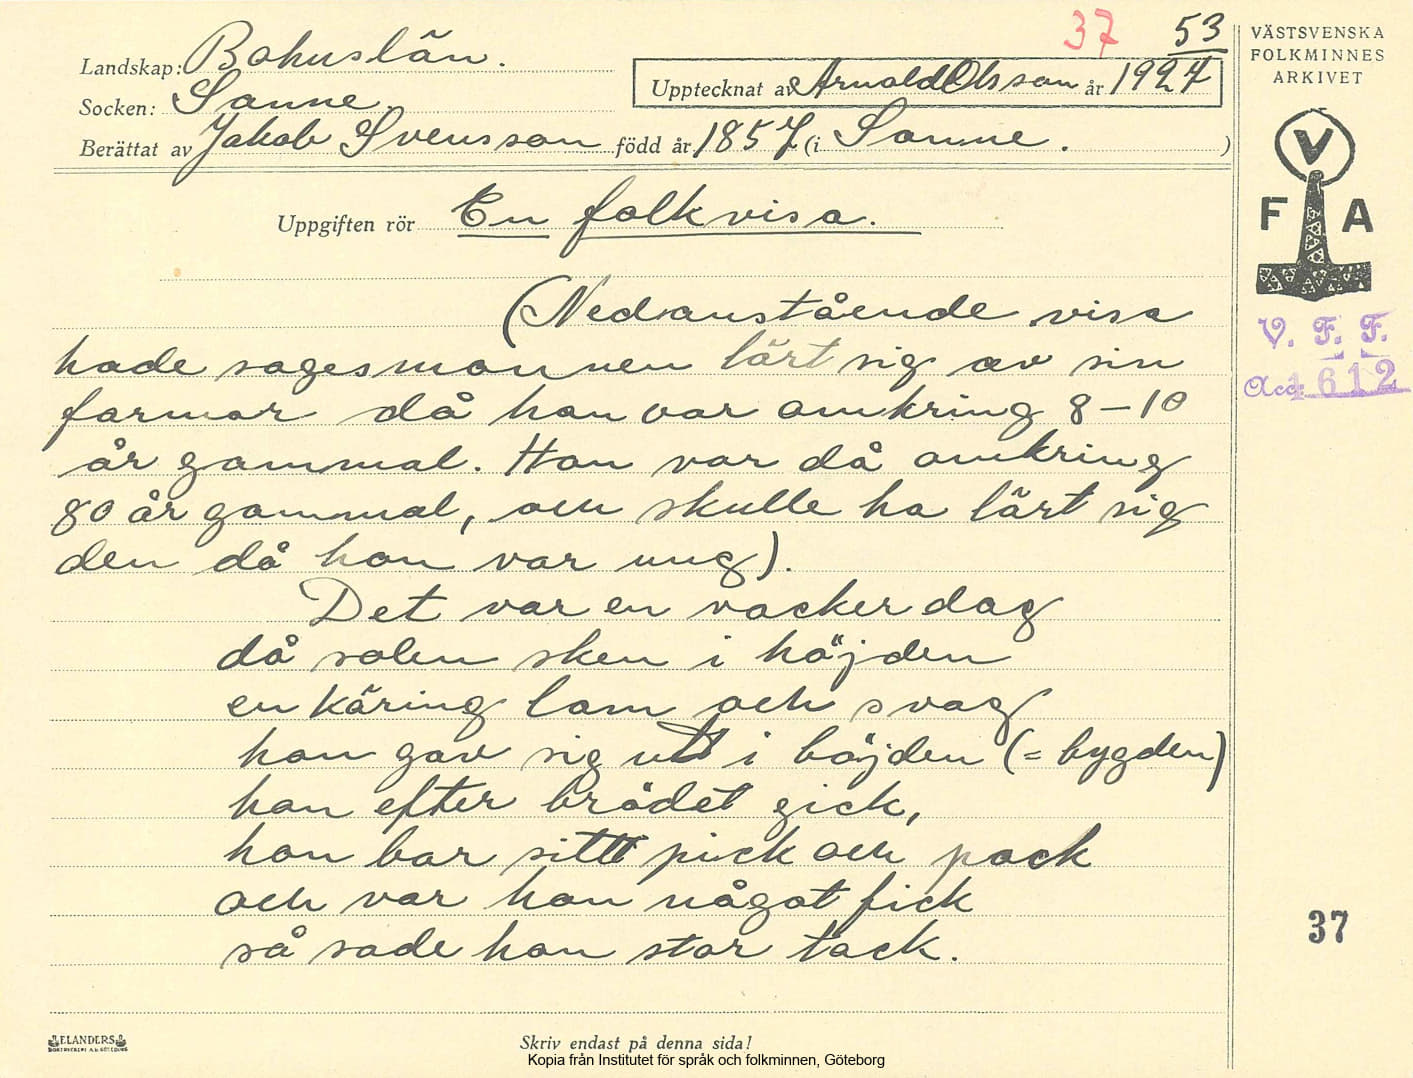 37 53
Landskap: Bohuslän.
Upptecknat av Arnold Olsson år 1927
Socken: Sanne
Berättat av Jakob Svensson född år 1857 (i Sanne. )
Uppgiften rör En folkvisa.
(Nedanstående visa
hade sagesmannen lärt sig av sin
farmor då han var omkring 8–10
år gammal. Hon var då omkring
80 år gammal, och skulle ha lärt sig
den då hon var ung).
Det var en vacker dag
då solen sken i höjden
en käring lam och svag
hon gav sig ut i böjden (= bygden)
hon efter brödet gick,
hon bar sitt pick och pack
och var hon något fick
så sade hon stor tack.
VÄSTSVENSKA
FOLKMINNES
ARKIVET
V
F A
V. F. F.
Acc: 1612
37
ELANDERS
BOKTRYCKERI A.B. GÖTEBORG
Skriv endast på denna sida!
Kopia från Institutet för språk och folkminnen, Göteborg